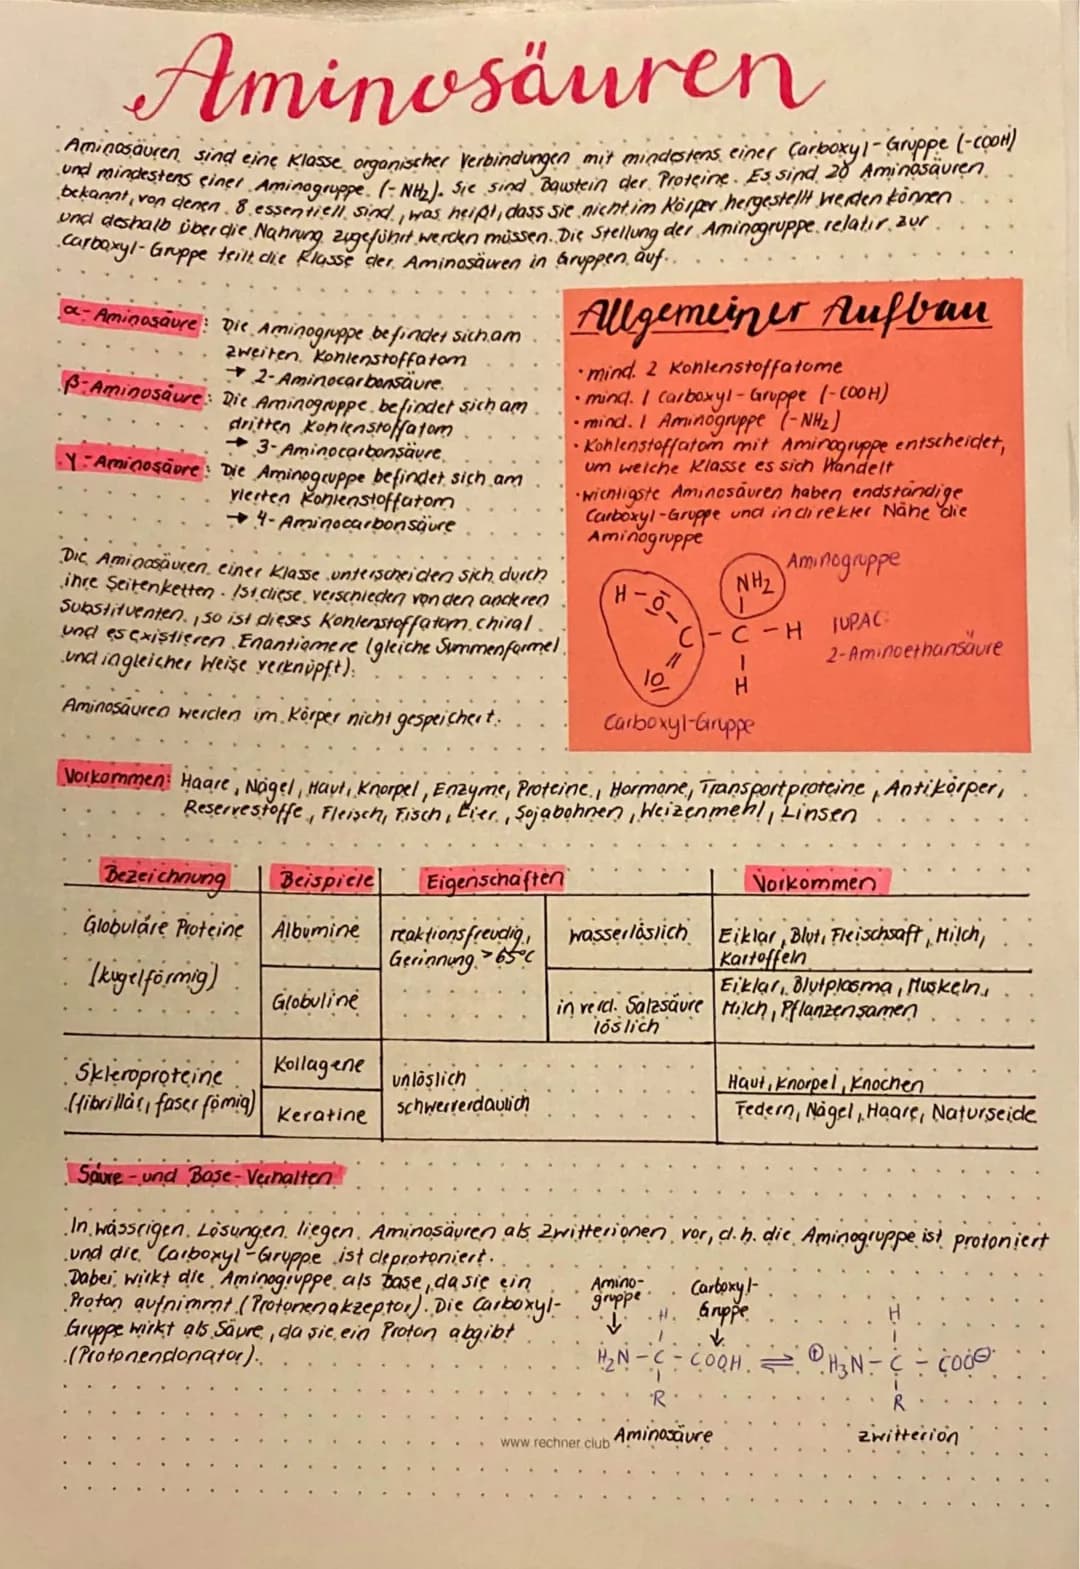 Aminosäuren
Aminosäuren sind eine Klasse organischer Verbindungen mit mindestens einer Carboxyl-Gruppe (-COOH)
und mindestens einer Aminogruppe (-NH₂). Sie sind Baustein der Proteine. Es sind 20 Aminosäuren
bekannt, von denen 8 essentiell sind, was heißt, dass sie nicht im Körper hergestellt werden können
und deshalb über die Nahrung zugeführt werden müssen. Die Stellung der Aminogruppe relativ zur
Carboxyl-Gruppe teilt die Klasse der Aminosäuren in Gruppen auf.
α-Aminosäure: Die Aminogruppe befindet sich am
zweiten Kohlenstoffatom
→ 2-Aminocarbonsäure
β-Aminosäure: Die Aminogruppe befindet sich am
dritten Kohlenstoffatom
→ 3-Aminocarbonsäure
γ-Aminosäure: Die Aminogruppe befindet sich am
vierten Kohlenstoffatom
→ 4-Aminocarbonsäure
Die Aminosäuren einer Klasse unterscheiden sich durch
ihre Seitenketten. Ist diese verschieden von den anderen
Substituenten, so ist dieses Kohlenstoffatom chiral
und es existieren Enantiomere (gleiche Summenformel
und in gleicher Weise verknüpft).
Aminosäuren werden im Körper nicht gespeichert.
Allgemeiner Aufbau
• mind. 2 Kohlenstoffatome
• mind. 1 Carboxyl-Gruppe (-COOH)
• mind. 1 Aminogruppe (-NH₂)
• Kohlenstoffatom mit Aminogruppe entscheidet,
um welche Klasse es sich Handelt
• wichtigste Aminosäuren haben endständige
Carboxyl-Gruppe und in direkter Nähe die
Aminogruppe
Aminogruppe
NH₂
H-O
C-C-H
IUPAC:
2-Aminoethansäure
IO
H
Carboxyl-Gruppe
Vorkommen: Haare, Nägel, Haut, Knorpel, Enzyme, Proteine, Hormone, Transportproteine, Antikörper,
Reservestoffe, Fleisch, Fisch, Eier, Sojabohnen, Weizenmehl, Linsen
Bezeichnung Beispiele Eigenschaften Vorkommen
Globuläre Proteine Albumine reaktionsfreudig, wasserlöslich Eiklar, Blut, Fleischsaft, Milch,
Gerinnung >65°C Kartoffeln
(kugelförmig) Eiklar, Blutplasma, Muskeln,
Globuline in verd. Salzsäure Milch, Pflanzensamen
löslich
Skleroproteine Kollagene unlöslich Haut, Knorpel, Knochen
(fibrillär, faserfömig) Keratine schwerverdaulich Federn, Nägel, Haare, Naturseide
Säure-und Base-Verhalten
In wässrigen Lösungen liegen Aminosäuren als Zwitterionen vor, d.h. die Aminogruppe ist protoniert
und die Carboxyl-Gruppe ist deprotoniert.
Dabei wirkt die Aminogruppe als Base, da sie ein
Proton aufnimmt (Protonenakzeptor). Die Carboxyl-
Gruppe wirkt als Säure, da sie ein Proton abgibt
(Protonendonator).
Amino- Carboxyl-
gruppe Gruppe
↓ H ↓ H
H₂N-C-COOH ⇌ ⊕H₃N-C-COO⊖
R R
Aminosäure Zwitterion
www.rechner.club